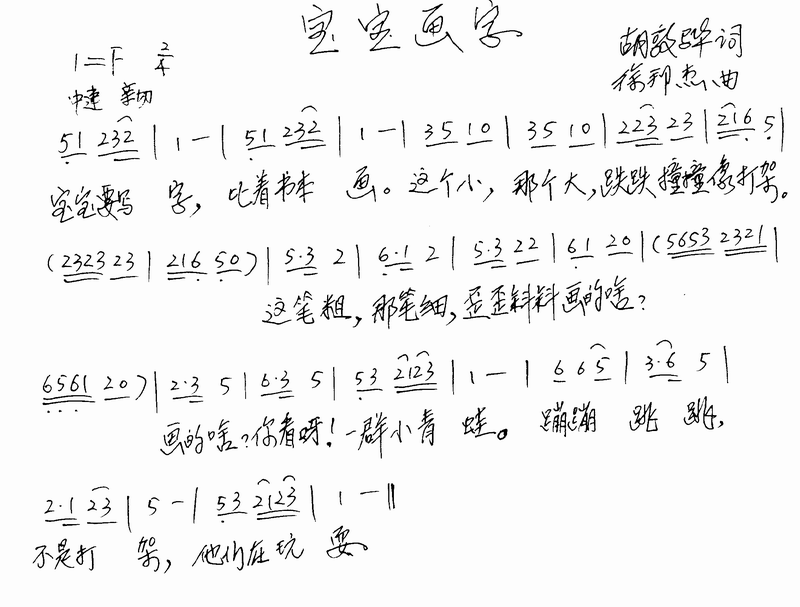 宝宝画字
1=F 2/4
胡敦骅词
中速 亲切
徐邦杰曲
51 232 | 1 - | 51 232 | 1 - | 35 10 | 35 10 | 223 23 | 216 5 |
宝宝要写 字，比着书本 画。这个小，那个大，跌跌撞撞像打架。
(2323 23 | 216 50) | 5·3 2 | 6·1 2 | 5·3 22 | 61 20 | (5653 2321 |
这笔粗，那笔细，歪歪斜斜画的啥？
6561 20) | 2·3 5 | 6·3 5 | 53 2123 | 1 - | 6 65 | 3·6 5 |
画的啥？你看呀！一群小青 蛙。 蹦蹦 跳 跳，
2·1 23 | 5 - | 53 2123 | 1 - ‖
不是打 架，他们在玩 耍。